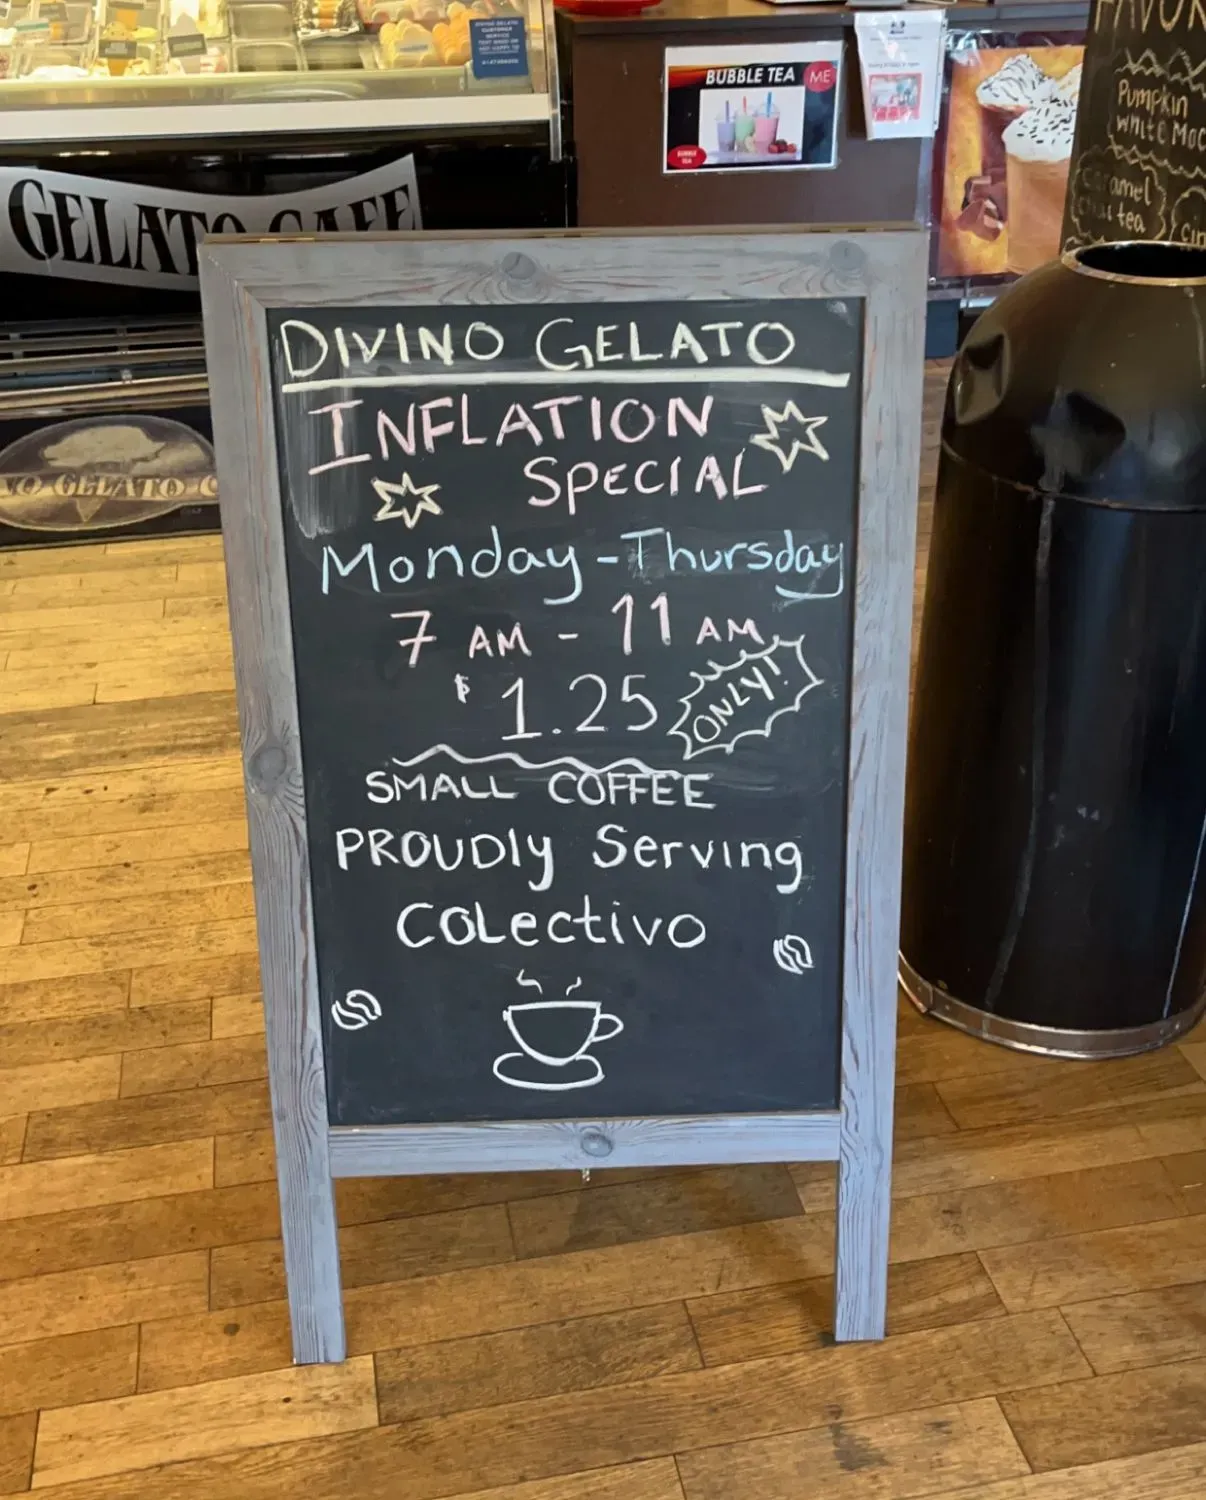 GELATO CAFE
BUBBLE TEA
ME
BUBBLE
TEA
Pumpkin
white Moc
caramel
chai tea
DIVINO GELATO
INFLATION
SPECIAL
Monday-Thursday
7 AM - 11 AM
$1.25 ONLY!
SMALL COFFEE
PROUDly Serving
COLectivo
NO GELATO C